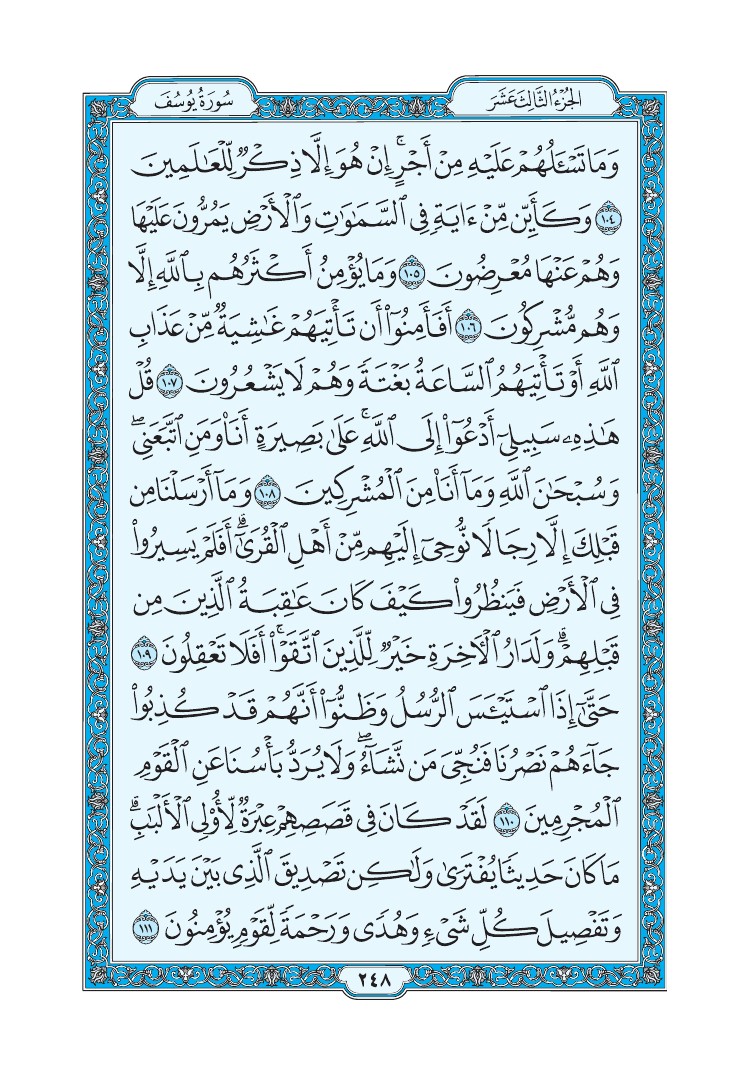 الجُزْءُ الثَّالِثَ عَشَرَ
سُورَةُ يُوسُفَ
وَمَا تَسْـَٔلُهُمْ عَلَيْهِ مِنْ أَجْرٍ ۚ إِنْ هُوَ إِلَّا ذِكْرٌ لِّلْعَـٰلَمِينَ
﴿١٠٤﴾ وَكَأَيِّن مِّنْ ءَايَةٍ فِى ٱلسَّمَـٰوَٰتِ وَٱلْأَرْضِ يَمُرُّونَ عَلَيْهَا
وَهُمْ عَنْهَا مُعْرِضُونَ ﴿١٠٥﴾ وَمَا يُؤْمِنُ أَكْثَرُهُم بِٱللَّهِ إِلَّا
وَهُم مُّشْرِكُونَ ﴿١٠٦﴾ أَفَأَمِنُوٓا۟ أَن تَأْتِيَهُمْ غَـٰشِيَةٌ مِّنْ عَذَابِ
ٱللَّهِ أَوْ تَأْتِيَهُمُ ٱلسَّاعَةُ بَغْتَةً وَهُمْ لَا يَشْعُرُونَ ﴿١٠٧﴾ قُلْ
هَـٰذِهِۦ سَبِيلِىٓ أَدْعُوٓا۟ إِلَى ٱللَّهِ ۚ عَلَىٰ بَصِيرَةٍ أَنَا۠ وَمَنِ ٱتَّبَعَنِى ۖ
وَسُبْحَـٰنَ ٱللَّهِ وَمَآ أَنَا۠ مِنَ ٱلْمُشْرِكِينَ ﴿١٠٨﴾ وَمَآ أَرْسَلْنَا مِن
قَبْلِكَ إِلَّا رِجَالًا نُّوحِىٓ إِلَيْهِم مِّنْ أَهْلِ ٱلْقُرَىٰٓ ۗ أَفَلَمْ يَسِيرُوا۟
فِى ٱلْأَرْضِ فَيَنظُرُوا۟ كَيْفَ كَانَ عَـٰقِبَةُ ٱلَّذِينَ مِن
قَبْلِهِمْ ۗ وَلَدَارُ ٱلْـَٔاخِرَةِ خَيْرٌ لِّلَّذِينَ ٱتَّقَوْا۟ ۗ أَفَلَا تَعْقِلُونَ ﴿١٠٩﴾
حَتَّىٰٓ إِذَا ٱسْتَيْـَٔسَ ٱلرُّسُلُ وَظَنُّوٓا۟ أَنَّهُمْ قَدْ كُذِبُوا۟
جَآءَهُمْ نَصْرُنَا فَنُجِّىَ مَن نَّشَآءُ ۖ وَلَا يُرَدُّ بَأْسُنَا عَنِ ٱلْقَوْمِ
ٱلْمُجْرِمِينَ ﴿١١٠﴾ لَقَدْ كَانَ فِى قَصَصِهِمْ عِبْرَةٌ لِّأُو۟لِى ٱلْأَلْبَـٰبِ ۗ
مَا كَانَ حَدِيثًا يُفْتَرَىٰ وَلَـٰكِن تَصْدِيقَ ٱلَّذِى بَيْنَ يَدَيْهِ
وَتَفْصِيلَ كُلِّ شَىْءٍ وَهُدًى وَرَحْمَةً لِّقَوْمٍ يُؤْمِنُونَ ﴿١١١﴾
٢٤٨